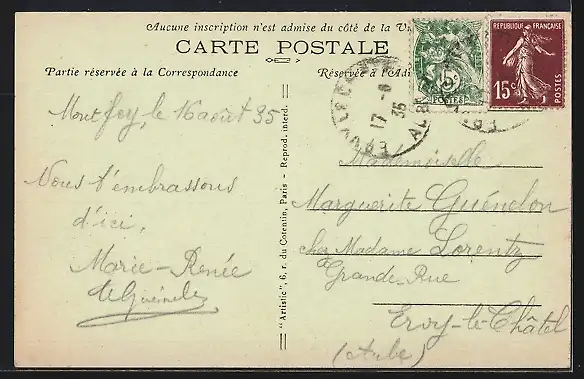 Aucune inscription n'est admise du côté de la
CARTE POSTALE
Partie réservée à la Correspondance
Réservée à l'Adr
5c
POSTES
REPUBLIQUE FRANÇAISE
15c
POSTES
17 -8
35
AUBE
Montfey, le 16 août 35
Nous t'embrassons
d'ici,
Marie-Renée
"Artistic", 6, r. du Cotentin, Paris - Reprod. interd.
Mademoiselle
Marguerite Guénelon
chez Madame Lorentz
Grande-Rue
Ervy-le-Châtel
(Aube)